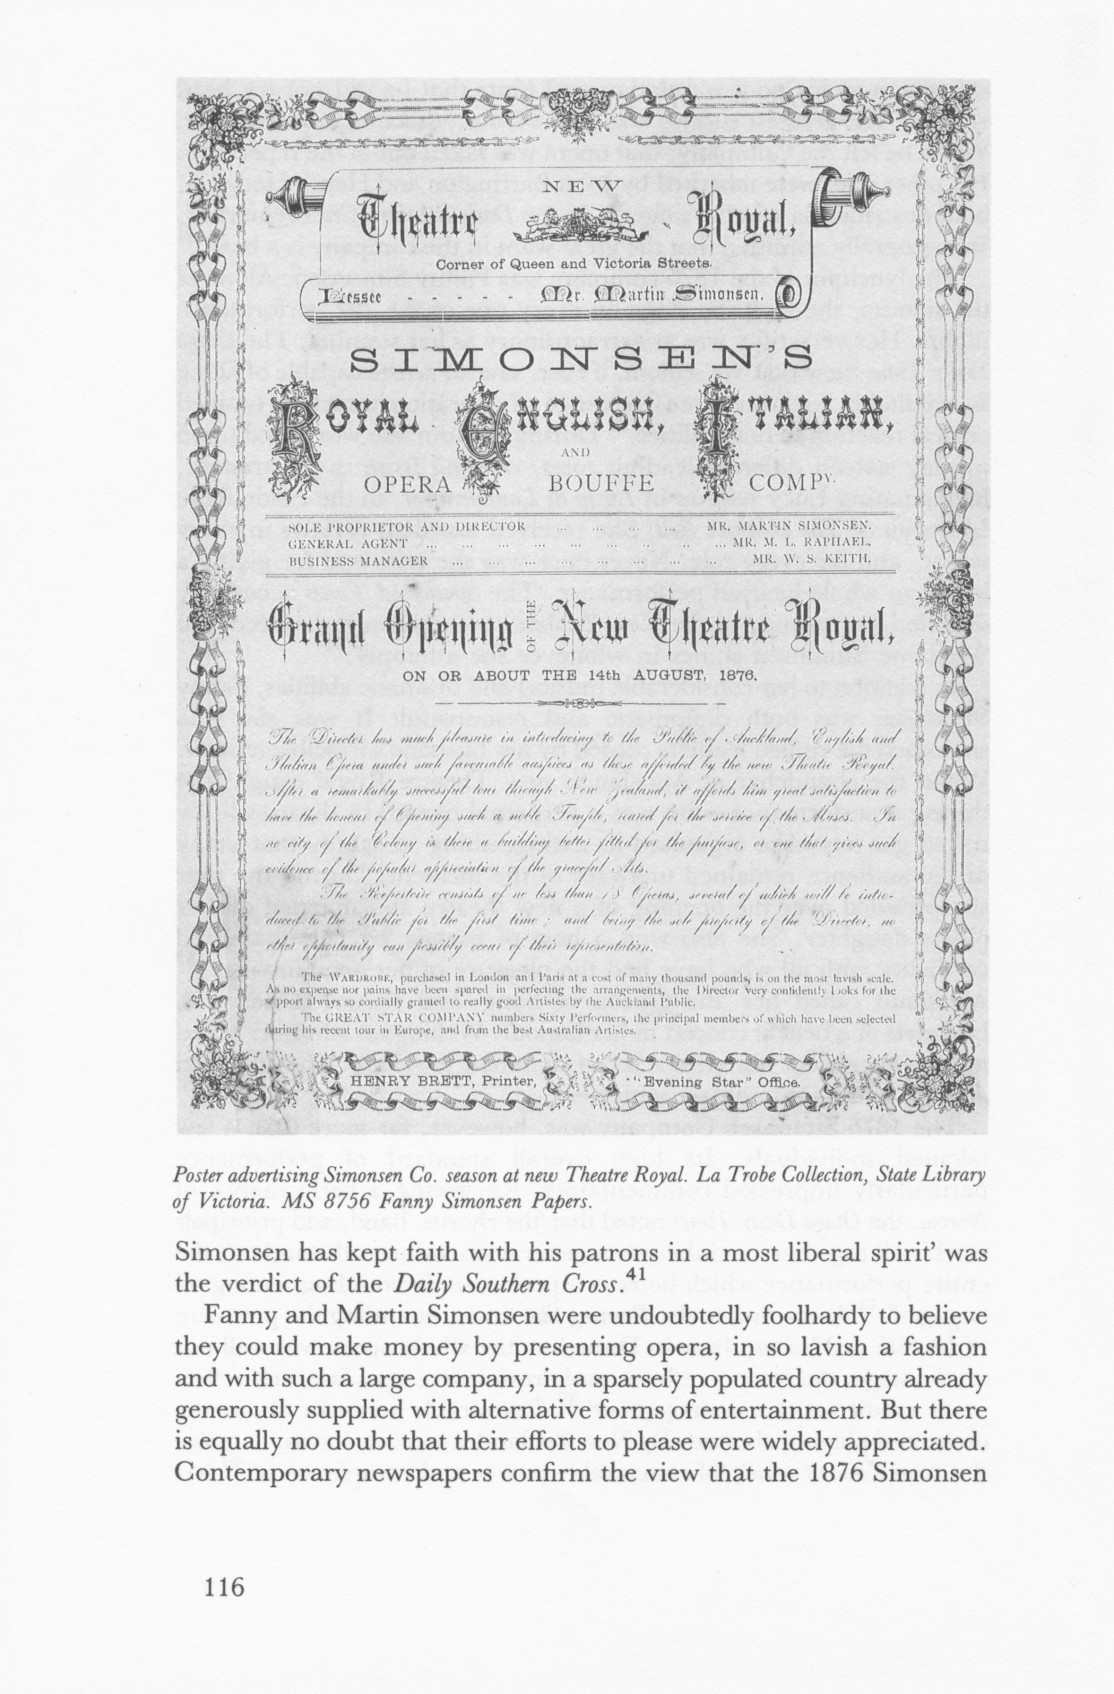 NEW
Theatre Royal,
Corner of Queen and Victoria Streets.
Lessee - - - - - Mr. Martin Simonsen.
SIMONSEN'S
ROYAL ENGLISH, ITALIAN,
AND
OPERA BOUFFE COMPY.
SOLE PROPRIETOR AND DIRECTOR ... ... ... ... MR. MARTIN SIMONSEN.
GENERAL AGENT ... ... ... ... ... ... ... ... ... MR. M. L. RAPHAEL.
BUSINESS MANAGER ... ... ... ... ... ... ... ... MR. W. S. KEITH.
Grand Opening OF THE New Theatre Royal,
ON OR ABOUT THE 14th AUGUST, 1876.
The Director has much pleasure in introducing to the Public of Auckland, English and
Italian Opera under such favourable auspices as those afforded by the new Theatre Royal.
After a remarkably successful tour through New Zealand, it affords him great satisfaction to
have the honour of Opening such a noble Temple, reared for the service of the Muses. In
no city of the Colony is there a building better fitted for the purpose, or one that gives such
evidence of the popular appreciation of the graceful Arts.
The Repertoire consists of no less than 18 Operas, several of which will be intro-
duced to the Public for the first time; and being the sole property of the Director, no
other opportunity can possibly occur of their representation.
The WARDROBE, purchased in London and Paris at a cost of many thousand pounds, is on the most lavish scale.
As no expense nor pains have been spared in perfecting the arrangements, the Director very confidently looks for the
support always so cordially granted to really good Artistes by the Auckland Public.
The GREAT STAR COMPANY numbers Sixty Performers, the principal members of which have been selected
during his recent tour in Europe, and from the best Australian Artistes.
HENRY BRETT, Printer, "Evening Star" Office.
Poster advertising Simonsen Co. season at new Theatre Royal. La Trobe Collection, State Library
of Victoria. MS 8756 Fanny Simonsen Papers.
Simonsen has kept faith with his patrons in a most liberal spirit' was
the verdict of the Daily Southern Cross.41
Fanny and Martin Simonsen were undoubtedly foolhardy to believe
they could make money by presenting opera, in so lavish a fashion
and with such a large company, in a sparsely populated country already
generously supplied with alternative forms of entertainment. But there
is equally no doubt that their efforts to please were widely appreciated.
Contemporary newspapers confirm the view that the 1876 Simonsen
116